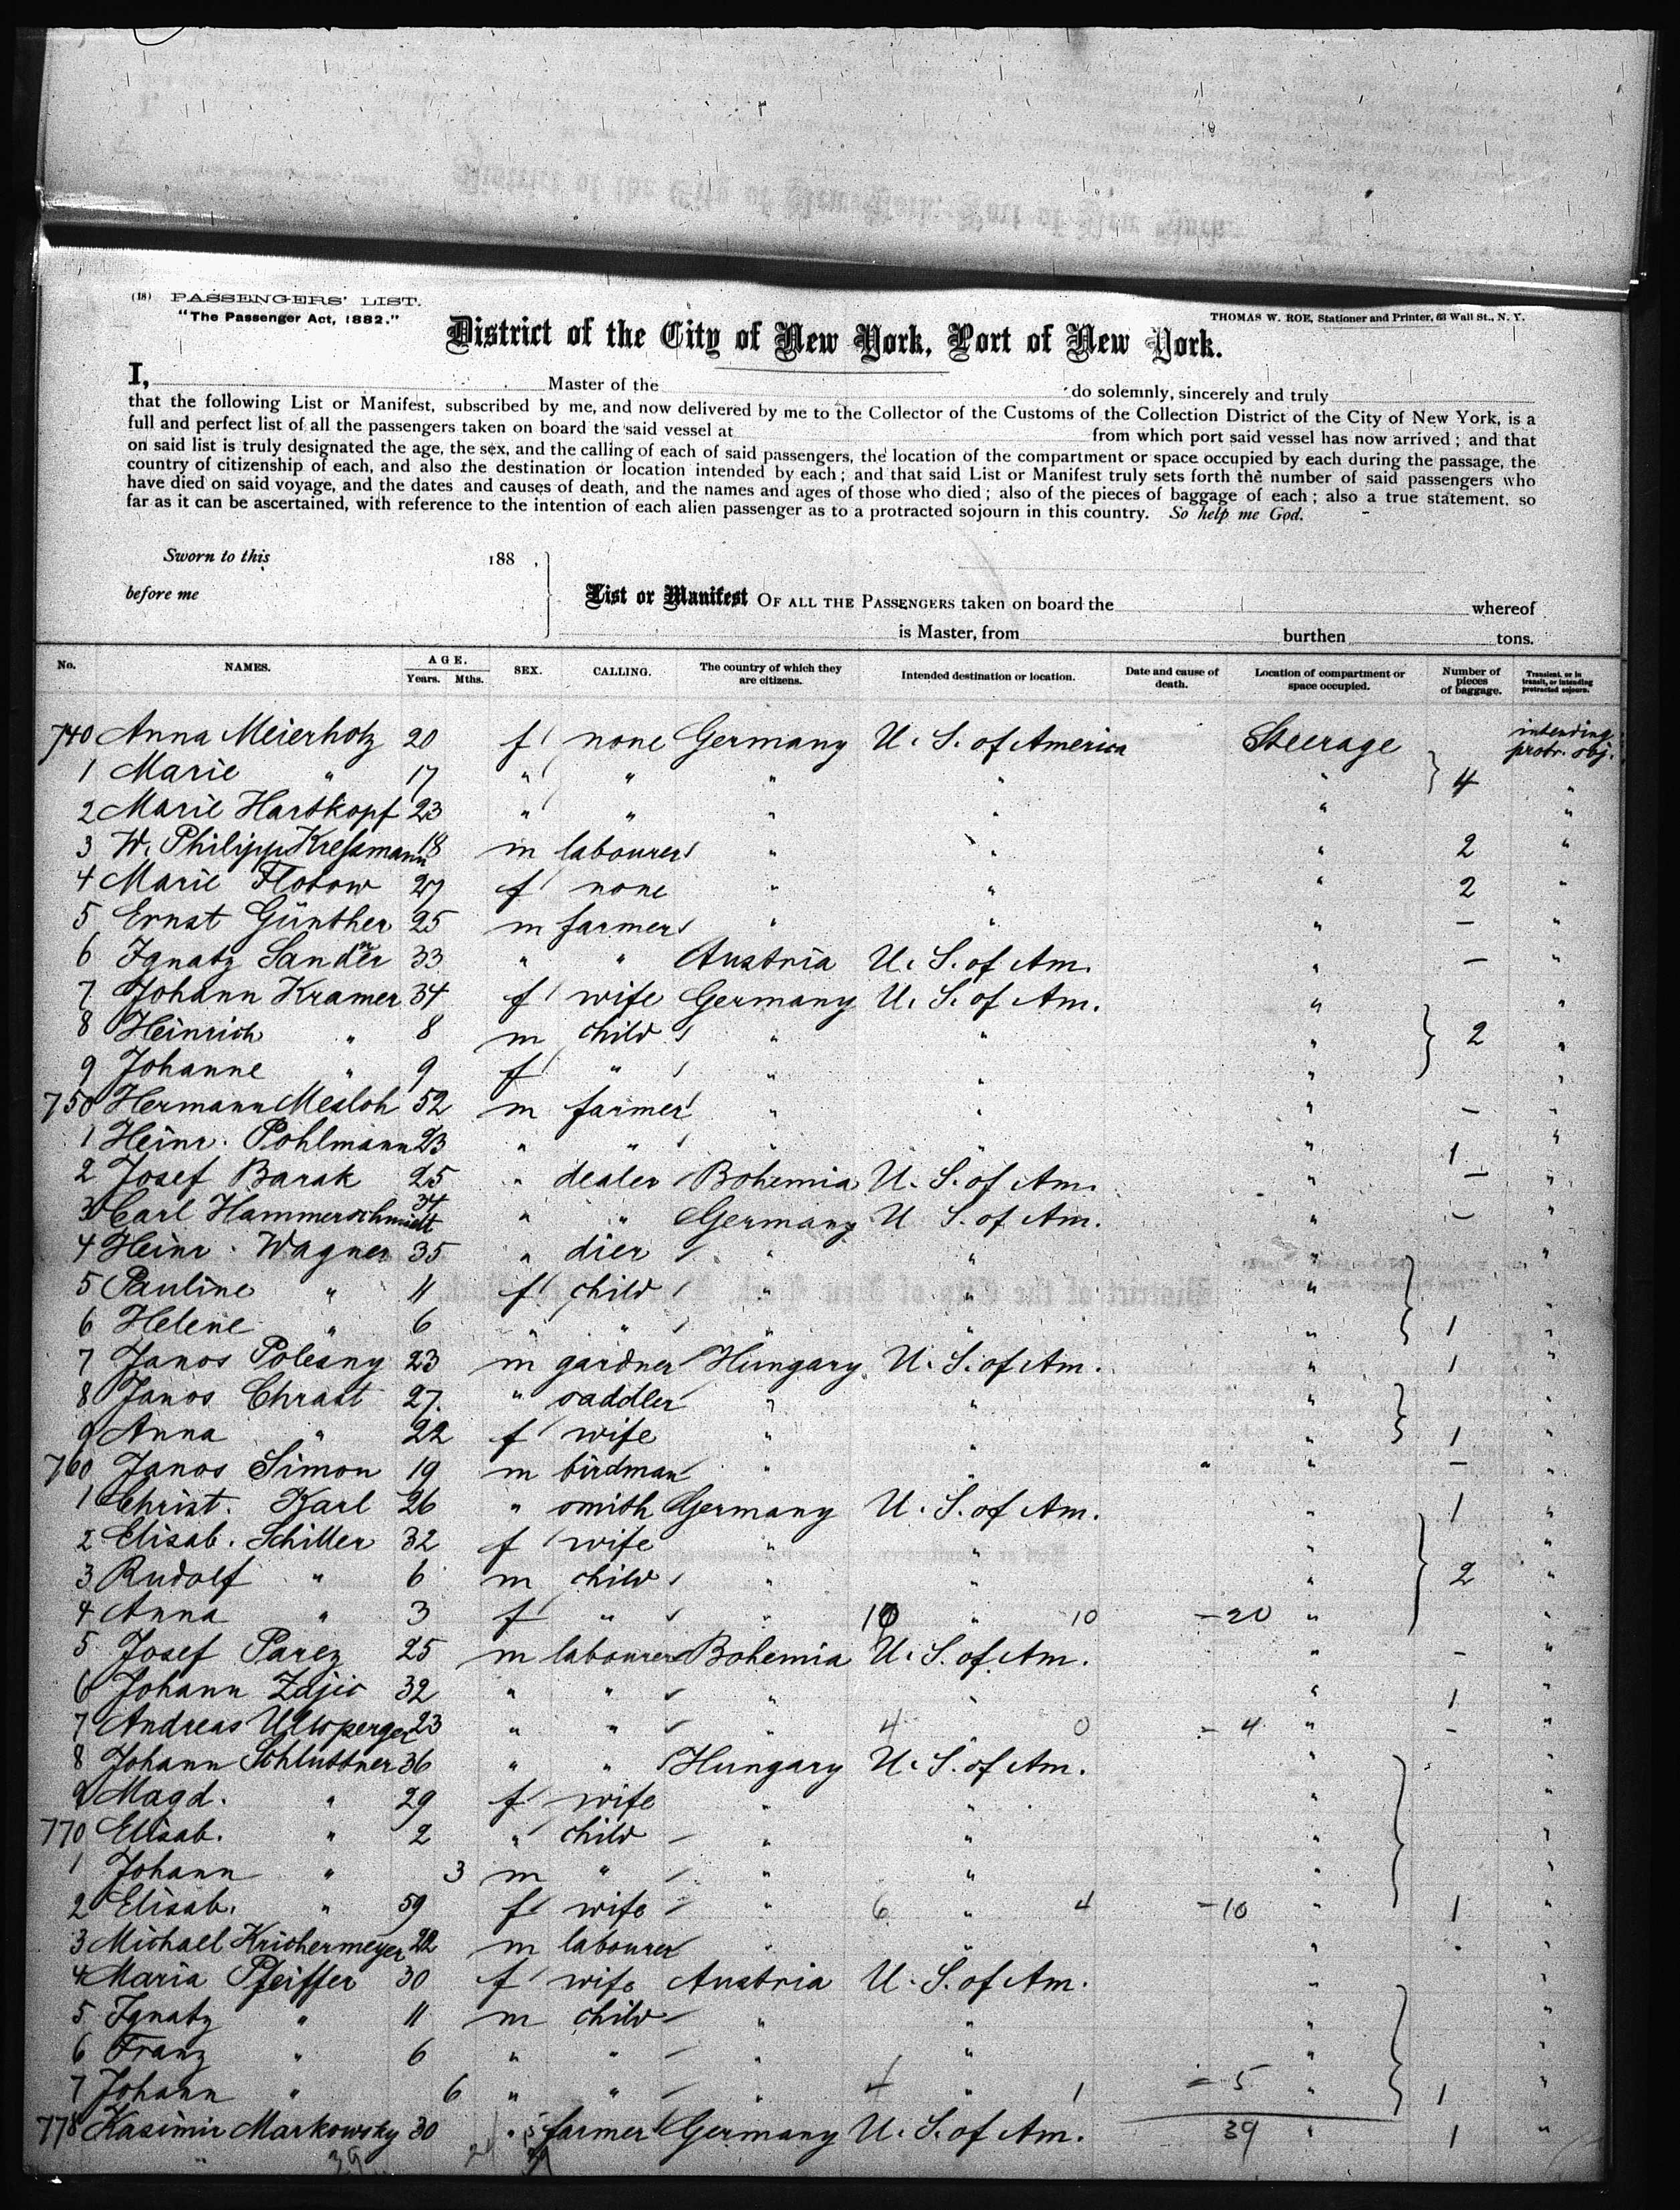 (18) PASSENGERS' LIST.
"The Passenger Act, 1882."
THOMAS W. ROE, Stationer and Printer, 63 Wall St., N. Y.
District of the City of New York, Port of New York.
I, Master of the do solemnly, sincerely and truly
that the following List or Manifest, subscribed by me, and now delivered by me to the Collector of the Customs of the Collection District of the City of New York, is a
full and perfect list of all the passengers taken on board the said vessel at from which port said vessel has now arrived; and that
on said list is truly designated the age, the sex, and the calling of each of said passengers, the location of the compartment or space occupied by each during the passage, the
country of citizenship of each, and also the destination or location intended by each; and that said List or Manifest truly sets forth the number of said passengers who
have died on said voyage, and the dates and causes of death, and the names and ages of those who died; also of the pieces of baggage of each; also a true statement, so
far as it can be ascertained, with reference to the intention of each alien passenger as to a protracted sojourn in this country. So help me God.
Sworn to this 188 ,
before me
List or Manifest OF ALL THE PASSENGERS taken on board the whereof
is Master, from burthen tons.
No. NAMES. AGE. Years. Mths. SEX. CALLING. The country of which they are citizens. Intended destination or location. Date and cause of death. Location of compartment or space occupied. Number of pieces of baggage. Transient, or in transit, or intending protracted sojourn.
740 Anna Meierholz 20 f none Germany U. S. of America Steerage intending protr. soj.
1 Marie " 17 " " " " " } 4 "
2 Marie Hartkopf 23 " " " " " "
3 W. Philipp Kressmann 18 m labourer " " " 2 "
4 Marie Flotow 27 f none " " " 2 "
5 Ernst Günther 25 m farmer " " " — "
6 Ignatz 33 " " Austria U. S. of Am. " — "
7 Johann Kramer 34 f wife Germany U. S. of Am. " "
8 Heinrich " 8 m child " " " } 2 "
9 Johanne " 9 f " " " " "
750 Hermann Mesloh 52 m farmer " " " — "
1 Heinr. Pohlmann 23 " " " " " 1 "
2 Josef Barak 25 " dealer Bohemia U. S. of Am. " — "
3 Carl Hammerschmidt 34 " " Germany U. S. of Am. " — "
4 Heinr. Wagner 35 " dier " " " "
5 Pauline " 11 f child " " " "
6 Helene " 6 " " " " " } 1 "
7 Janos Polesny 23 m gardner Hungary U. S. of Am. " 1 "
8 Janos Chrast 27. " saddler " " " "
9 Anna " 22 f wife " " " } 1 "
760 Janos Simon 19 m birdman " " " — "
1 Christ. Karl 26 " smith Germany U. S. of Am. " 1 "
2 Elisab. Schiller 32 f wife " " " "
3 Rudolf " 6 m child " " " } 2 "
4 Anna " 3 f " " 10 " 10 — 20 " "
5 Josef Parez 25 m labourer Bohemia U. S. of Am. " — "
6 Johann Zajic 32 " " " " " 1 "
7 Andreas 23 " " " 4 0 = 4 " — "
8 Johann Schluttner 36 " " Hungary U. S. of Am. " "
9 Magd. " 29 f wife " " " "
770 Elisab. " 2 " child " " " "
1 Johann " 3 m " " " " "
2 Elisab. " 59 f wife " 6 " 4 = 10 " } 1 "
3 Michael Krichermeyer 22 m labourer " " " "
4 Maria Pfeiffer 30 f wife Austria U. S. of Am. " "
5 Ignatz " 11 m child " " " "
6 Franz " 6 " " " " " "
7 Johann " 6 " " " 4 " 1 = 5 " } 1 "
778 Kasimir Markowsky 30 " farmer Germany U. S. of Am. 39 " 1 "
39